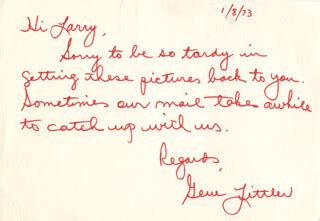 1/8/73
Hi Larry,
Sorry to be so tardy in
getting these pictures back to you.
Sometimes our mail takes awhile
to catch up with us.
Regards,
Gene Littler